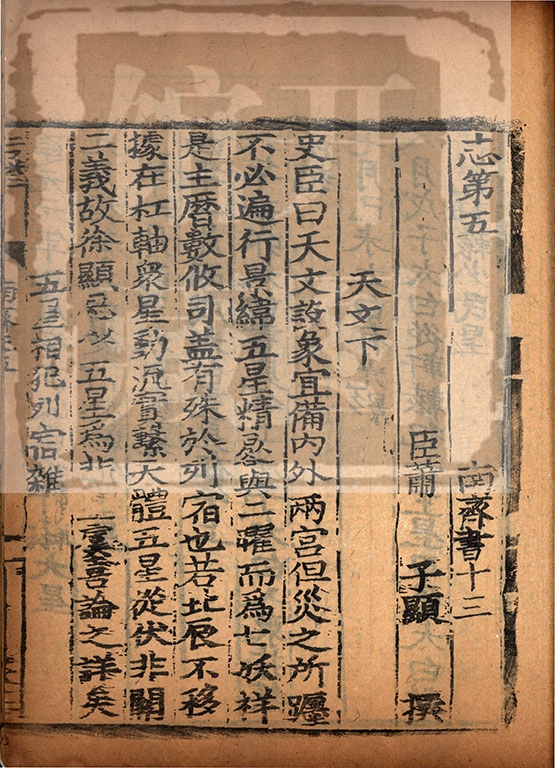 志第五　南齊書十三
臣蕭　子顯　撰
天文下
史臣曰天文設象宜備內外兩宮但災之所躔
不必遍行景緯五星精晷與二曜而爲七妖祥
是主曆數攸司蓋有殊於列宿也若北辰不移
據在杠軸衆星動流實繫天體五星從伏非關
二義故徐顯思以五星爲非星虞喜論之詳矣
五星相犯列宿雜